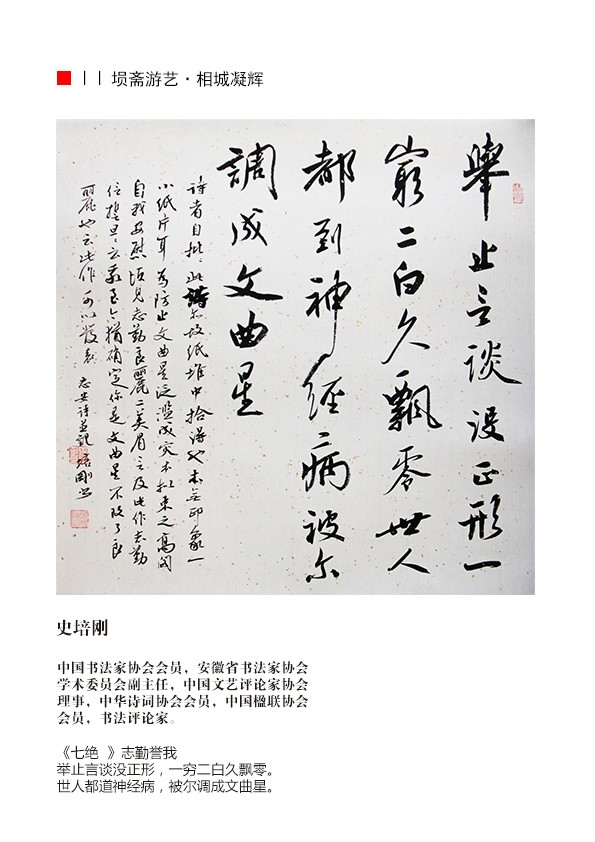 丨丨 埙斋游艺・相城凝辉
舉止言谈没正形一
窮二白久飄零世人
都到神经病被尔
調成文曲星
诗者自批：此诗尔故纸堆中拾得也本无印象一
小纸片耳為防止文曲星泛滥成灾本批束之高阁
自我安慰顷見志勤良麗二美眉言及此作志勤
确定你是文曲星不改了良
麗也云此作可以發表 志安诗并记 培剛
史培刚
中国书法家协会会员，安徽省书法家协会
学术委员会副主任，中国文艺评论家协会
理事，中华诗词协会会员，中国楹联协会
会员，书法评论家。
《七绝 》志勤誉我
举止言谈没正形，一穷二白久飘零。
世人都道神经病，被尔调成文曲星。